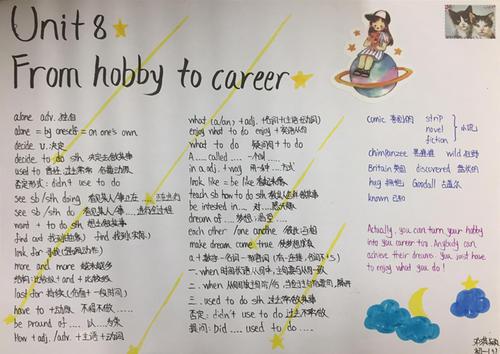 Unit 8
From hobby to career
alone adv. 独自
alone = by oneself = on one's own.
decide v. 决定
decide to do sth 决定去做某事
used to 曾经,过去常常
否定形式: didn't use to do
see sb/sth doing 看见某人/事正在
see sb/sth do 看见某人/事
want + to do sth 想去做某事
find out 找到 find 找到
look for 寻找
more and more 越来越多
结构: 比较级 + and + 比较级
last for 持续
have to + 动原 不得不做……
be pround of …… 以……为荣
How + adj./adv. + 主语 + 动词
what (a/an) + adj. + 名词 + (主语 + 动词)
enjoy what to do enjoy +
what to do 疑问词 + to do
A …… called …… 一个叫……
in a adj. + way 用一种……方式
look like = be like 看起来像
teach sb how to do sth 教某人怎样做某事
be intersted in …… 对……感兴趣
dream of …… 梦想,渴望……
each other / one anothe 彼此,互相
make dream come true 使梦想成真
a + 数字 - 名词 - 形容词
一. when 时间状语从句中,
二. when 从句
三. used to do sth 过去常常做某事
否定: didn't use to do 过去不常做
提问: Did …… used to do ……
comic 喜剧的 strip
novel
fiction 小说
chimpanzee 黑猩猩 wild 野外
Britain 英国 discovered 发现的
hug 拥抱 Goodall 古道尔
known 已知
Actually, you can turn your hobby
into you career too. Anybody can
achieve their dreams. You just have
to enjoy what you do!